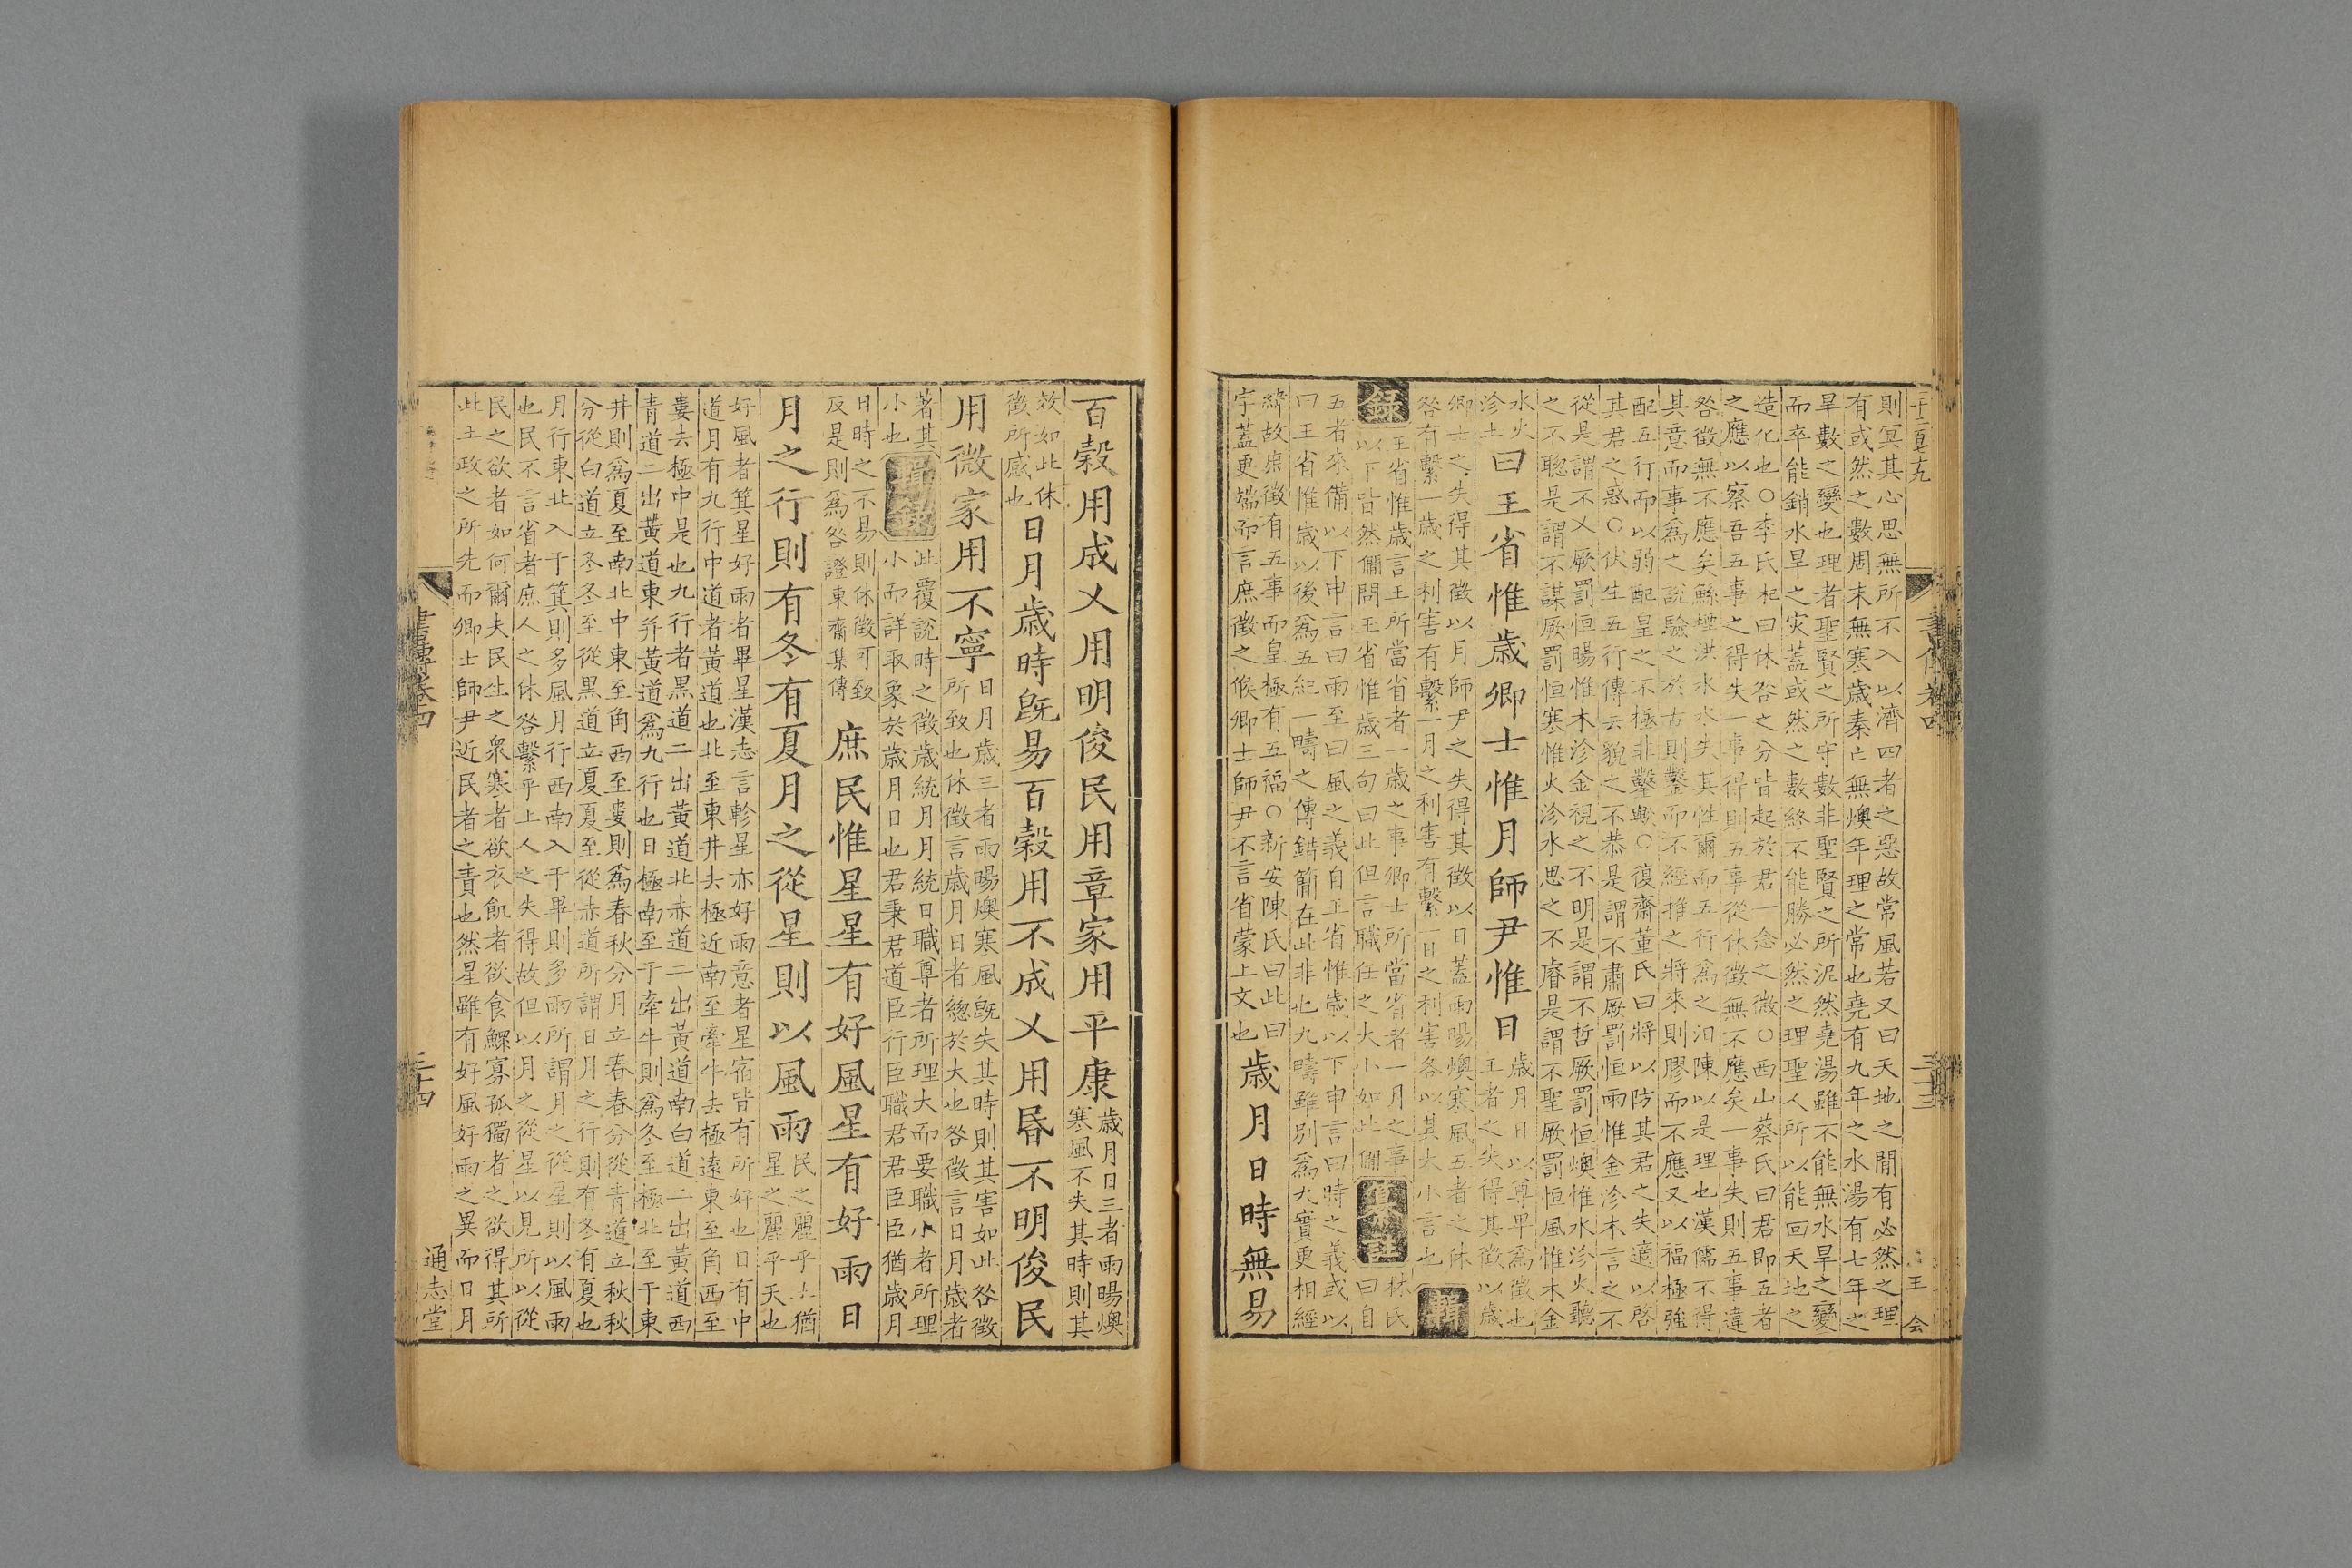 二十二百七九
書傳卷四
三十三
王会
則冥其心思無所不入以濟四者之惡故常風若又曰天地之閒有必然之理
有或然之數周末無寒歲秦亡無燠年理之常也堯有九年之水湯有七年之
旱數之變也理者聖賢之所守數非聖賢之所泥然堯湯雖不能無水旱之變
而卒能銷水旱之灾蓋或然之數終不能勝必然之理聖人所以能回天地之
造化也○李氏杞曰休咎之分皆起於君一念之微○西山蔡氏曰君即五者
之應以察吾五事之得失一事得則五事從休徵無不應矣一事失則五事違
咎徵無不應矣鯀堙洪水水失其性爾而五行爲之汩陳以是理也漢儒不得
其意而事爲之說驗之於古則鑿而不經推之將來則膠而不應又以福極強
配五行而以弱配皇之不極非鑿歟○復齋董氏曰將以防其君之失適以啓
其君之惑○伏生五行傳云貌之不恭是謂不肅厥罰恒雨惟金沴木言之不
從是謂不乂厥罰恒暘惟木沴金視之不明是謂不哲厥罰恒燠惟水沴火聽
之不聦是謂不謀厥罰恒寒惟火沴水思之不睿是謂不聖厥罰恒風惟木金
水火
沴土
曰王省惟歲卿士惟月師尹惟日
歲月日以尊卑爲徵也
王者之失得其徵以歲
卿士之失得其徵以月師尹之失得其徵以日蓋雨暘燠寒風五者之休
咎有繫一歲之利害有繫一月之利害有繫一日之利害各以其大小言也
輯
錄
王省惟歲言王所當省者一歲之事卿士所當省者一月之事
以下皆然僩問王省惟歲三句曰此但言職任之大小如此僩
集註
林氏
曰自
五者來備以下申言曰雨至曰風之義自王省惟歲以下申言曰時之義或以
曰王省惟歲以後爲五紀一疇之傳錯簡在此非也九疇雖別爲九實更相經
緯故庶徵有五事而皇極有五福○新安陳氏曰此曰
字蓋更端而言庶徵之候卿士師尹不言省蒙上文也
歲月日時無易
百穀用成乂用明俊民用章家用平康
歲月日三者雨暘燠
寒風不失其時則其
效如此休
徵所感也
日月歲時旣易百穀用不成乂用昬不明俊民
用微家用不寧
日月歲三者雨暘燠寒風旣失其時則其害如此咎徵
所致也休徵言歲月日者總於大也咎徵言日月歲者
著其
小也
輯錄
此覆說時之徵歲統月月統日職尊者所理大而要職小者所理
小而詳取象於歲月日也君秉君道臣行臣職君君臣臣猶歲月
日時之不易則休徵可致
反是則爲咎證東齋集傳
庶民惟星星有好風星有好雨日
月之行則有冬有夏月之從星則以風雨
民之麗乎土猶
星之麗乎天也
好風者箕星好雨者畢星漢志言軫星亦好雨意者星宿皆有所好也日有中
道月有九行中道者黃道也北至東井去極近南至牽牛去極遠東至角西至
婁去極中是也九行者黑道二出黃道北赤道二出黃道南白道二出黃道西
青道二出黃道東并黃道爲九行也日極南至于牽牛則爲冬至極北至于東
井則爲夏至南北中東至角西至婁則爲春秋分月立春春分從青道立秋秋
分從白道立冬冬至從黑道立夏夏至從赤道所謂日月之行則有冬有夏也
月行東北入于箕則多風月行西南入于畢則多雨所謂月之從星則以風雨
也民不言省者庶人之休咎繫乎上人之失得故但以月之從星以見所以從
民之欲者如何爾夫民生之衆寒者欲衣飢者欲食鰥寡孤獨者之欲得其所
此王政之所先而卿士師尹近民者之責也然星雖有好風好雨之異而日月
書傳卷四
三十四
通志堂